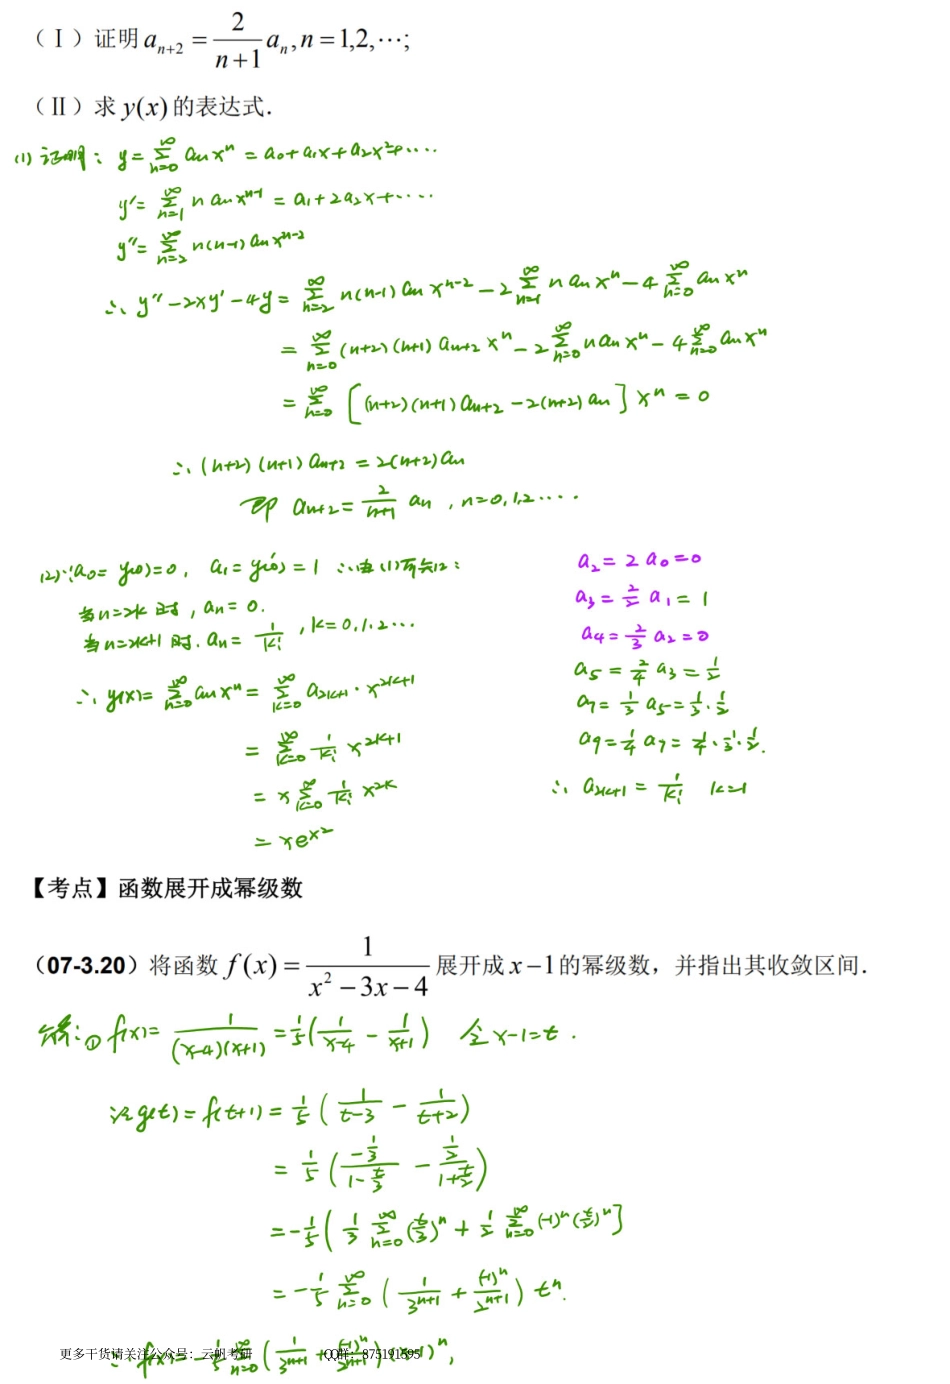 （Ⅰ）证明 a_{n+2} = \frac{2}{n+1} a_n, n = 1,2,⋯;
（Ⅱ）求 y(x) 的表达式.
(1) 证明： y = \sum_{n=0}^{∞} a_n x^n = a_0 + a_1x + a_2x^2 + ····
y' = \sum_{n=1}^{∞} n a_n x^{n-1} = a_1 + 2a_2x + ····
y'' = \sum_{n=2}^{∞} n(n-1) a_n x^{n-2}
∴ y'' - 2xy' - 4y = \sum_{n=2}^{∞} n(n-1) a_n x^{n-2} - 2\sum_{n=1}^{∞} n a_n x^n - 4\sum_{n=0}^{∞} a_n x^n
= \sum_{n=0}^{∞} (n+2)(n+1) a_{n+2} x^n - 2\sum_{n=0}^{∞} n a_n x^n - 4\sum_{n=0}^{∞} a_n x^n
= \sum_{n=0}^{∞} [(n+2)(n+1) a_{n+2} - 2(n+2) a_n] x^n = 0
∴ (n+2)(n+1) a_{n+2} = 2(n+2) a_n
即 a_{n+2} = \frac{2}{n+1} a_n , n=0,1,2····
(2) ∵ a_0 = y(0) = 0, a_1 = y'(0) = 1 ∴由(1)可知：
当n=2k时, a_n = 0.
当n=2k+1时. a_n = \frac{1}{k!} , k=0,1,2···
∴ y(x) = \sum_{n=0}^{∞} a_n x^n = \sum_{k=0}^{∞} a_{2k+1} · x^{2k+1}
= \sum_{k=0}^{∞} \frac{1}{k!} x^{2k+1}
= x \sum_{k=0}^{∞} \frac{1}{k!} x^{2k}
= x e^{x^2}
a_2 = 2 a_0 = 0
a_3 = \frac{2}{2} a_1 = 1
a_4 = \frac{2}{3} a_2 = 0
a_5 = \frac{2}{4} a_3 = \frac{1}{2}
a_7 = \frac{1}{3} a_5 = \frac{1}{3}·\frac{1}{2}
a_9 = \frac{1}{4} a_7 = \frac{1}{4}·\frac{1}{3}·\frac{1}{2}.
∴ a_{2k+1} = \frac{1}{k!}
【考点】函数展开成幂级数
（07-3.20）将函数 f(x) = \frac{1}{x^2-3x-4} 展开成 x-1 的幂级数，并指出其收敛区间.
解：① f(x) = \frac{1}{(x-4)(x+1)} = \frac{1}{5}(\frac{1}{x-4} - \frac{1}{x+1}) 令 x-1=t .
设 g(t) = f(t+1) = \frac{1}{5}(\frac{1}{t-3} - \frac{1}{t+2})
= \frac{1}{5}(\frac{-\frac{1}{3}}{1-\frac{t}{3}} - \frac{\frac{1}{2}}{1+\frac{t}{2}})
= -\frac{1}{5}[\frac{1}{3}\sum_{n=0}^{∞}(\frac{t}{3})^n + \frac{1}{2}\sum_{n=0}^{∞}(-1)^n(\frac{t}{2})^n]
= -\frac{1}{5}\sum_{n=0}^{∞}(\frac{1}{3^{n+1}} + \frac{(-1)^n}{2^{n+1}}) t^n.
∴ f(x) = -\frac{1}{5}\sum_{n=0}^{∞}(\frac{1}{3^{n+1}} + \frac{(-1)^n}{2^{n+1}})(x-1)^n,
更多干货请关注公众号：云帆考研 QQ群：875191895